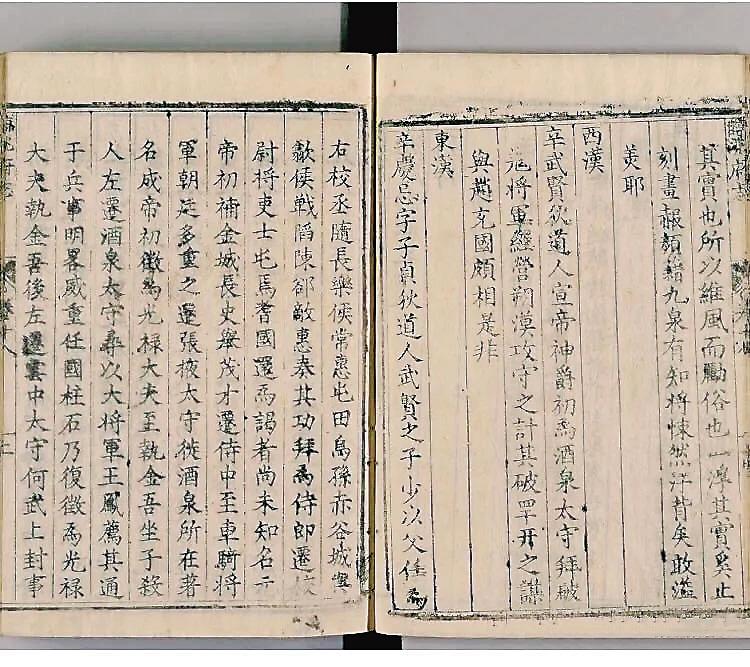 其實也所以維風而勵俗也一淳其實奚止
刻畫赧顏籍九泉有知將悚然汗背矣敢濫
美耶
西漢
辛武賢狄道人宣帝神爵初爲酒泉太守拜破
羌將軍經營朔漠攻守之計其破罕开之謀
與趙充國頗相是非
東漢
辛慶忌字子眞狄道人武賢之子少以父任爲
右校丞隨長樂侯常惠屯田烏孫赤谷城與
歙侯戰陷陳郤敵惠奏其功拜爲侍郎遷校
尉將吏士屯焉耆國還爲謁者尚未知名元
帝初補金城長史擧茂才遷侍中至車騎將
軍朝廷多重之遷張掖太守徙酒泉所在著
名成帝初徵爲光祿大夫至執金吾坐子殺
人左遷酒泉太守尋以大將軍王鳳薦其通
于兵事明畧威重任國柱石乃復徵爲光祿
大夫執金吾後左遷雲中太守何武上封事